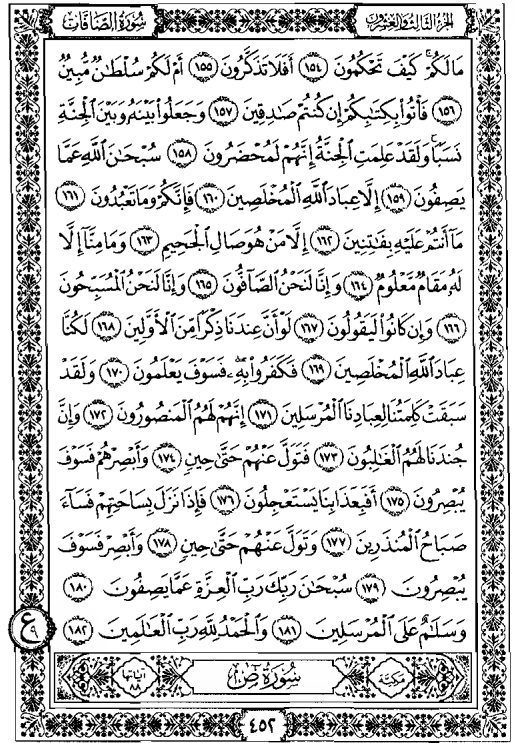 سورة الصافات
الجزء الثالث والعشرون
مَا لَكُمْ كَيْفَ تَحْكُمُونَ ١٥٤ أَفَلَا تَذَكَّرُونَ ١٥٥ أَمْ لَكُمْ سُلْطَانٌ مُّبِينٌ
١٥٦ فَأْتُوا بِكِتَابِكُمْ إِن كُنتُمْ صَادِقِينَ ١٥٧ وَجَعَلُوا بَيْنَهُ وَبَيْنَ الْجِنَّةِ
نَسَبًا وَلَقَدْ عَلِمَتِ الْجِنَّةُ إِنَّهُمْ لَمُحْضَرُونَ ١٥٨ سُبْحَانَ اللَّهِ عَمَّا
يَصِفُونَ ١٥٩ إِلَّا عِبَادَ اللَّهِ الْمُخْلَصِينَ ١٦٠ فَإِنَّكُمْ وَمَا تَعْبُدُونَ ١٦١
مَا أَنتُمْ عَلَيْهِ بِفَاتِنِينَ ١٦٢ إِلَّا مَنْ هُوَ صَالِ الْجَحِيمِ ١٦٣ وَمَا مِنَّا إِلَّا
لَهُ مَقَامٌ مَّعْلُومٌ ١٦٤ وَإِنَّا لَنَحْنُ الصَّافُّونَ ١٦٥ وَإِنَّا لَنَحْنُ الْمُسَبِّحُونَ
١٦٦ وَإِن كَانُوا لَيَقُولُونَ ١٦٧ لَوْ أَنَّ عِندَنَا ذِكْرًا مِّنَ الْأَوَّلِينَ ١٦٨ لَكُنَّا
عِبَادَ اللَّهِ الْمُخْلَصِينَ ١٦٩ فَكَفَرُوا بِهِ فَسَوْفَ يَعْلَمُونَ ١٧٠ وَلَقَدْ
سَبَقَتْ كَلِمَتُنَا لِعِبَادِنَا الْمُرْسَلِينَ ١٧١ إِنَّهُمْ لَهُمُ الْمَنصُورُونَ ١٧٢ وَإِنَّ
جُندَنَا لَهُمُ الْغَالِبُونَ ١٧٣ فَتَوَلَّ عَنْهُمْ حَتَّى حِينٍ ١٧٤ وَأَبْصِرْهُمْ فَسَوْفَ
يُبْصِرُونَ ١٧٥ أَفَبِعَذَابِنَا يَسْتَعْجِلُونَ ١٧٦ فَإِذَا نَزَلَ بِسَاحَتِهِمْ فَسَاءَ
صَبَاحُ الْمُنذَرِينَ ١٧٧ وَتَوَلَّ عَنْهُمْ حَتَّى حِينٍ ١٧٨ وَأَبْصِرْ فَسَوْفَ
يُبْصِرُونَ ١٧٩ سُبْحَانَ رَبِّكَ رَبِّ الْعِزَّةِ عَمَّا يَصِفُونَ ١٨٠
وَسَلَامٌ عَلَى الْمُرْسَلِينَ ١٨١ وَالْحَمْدُ لِلَّهِ رَبِّ الْعَالَمِينَ ١٨٢
ع ٩
مكية
سورة ص
آياتها ٨٨
٤٥٢